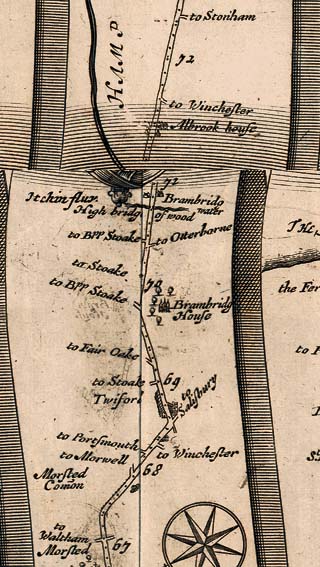 to Stonham
72
HAMP
to Winchester
Albrook house
71
Itchin fluv.
Brambridg
water
High bridg of wood
to Bpp Stoake
to Otterborne
to Stoake
70
to Bpp Stoake
Brambridg
House
to Fair Oake
to Stoake
69
Twiford
to
Salisbury
to Portsmouth
to Winchester
to Morwell
68
Morsted
Comon
to
Waltham
67
Morsted
THE
the Fer
to P